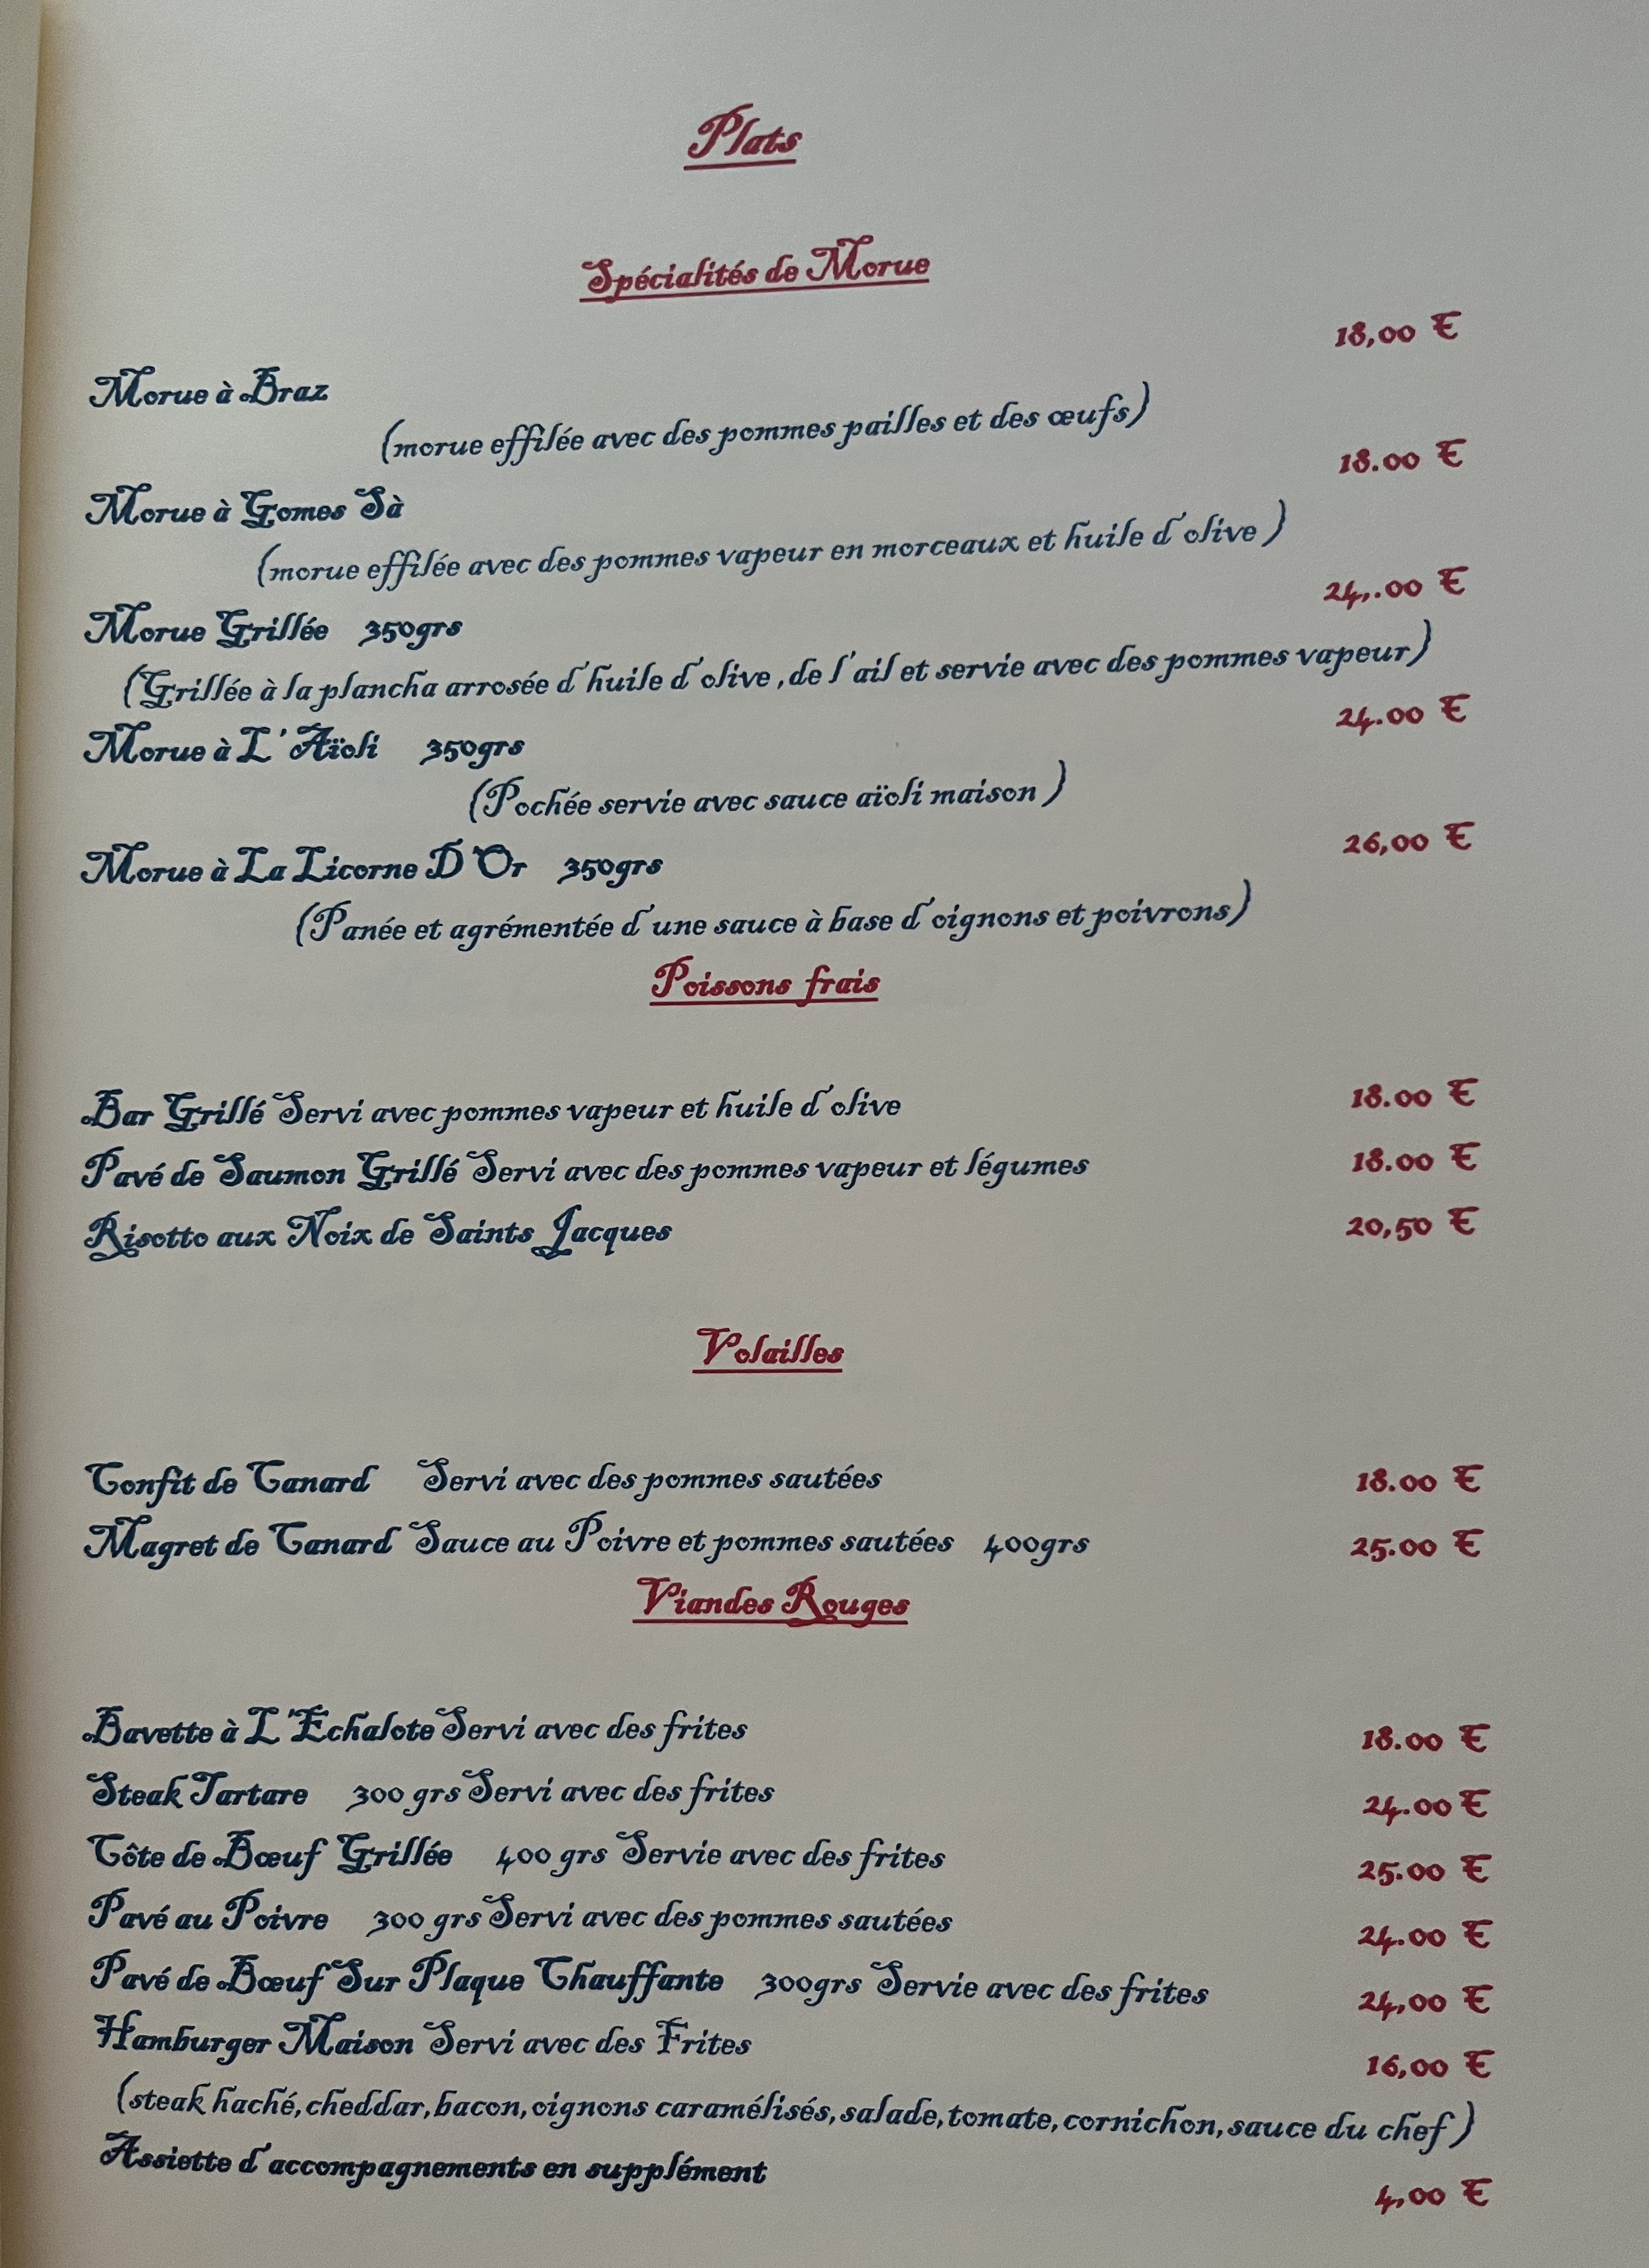 Plats
Spécialités de Morue
18,00 €
Morue à Braz
(morue effilée avec des pommes pailles et des œufs)
18.00 €
Morue à Gomes Sà
(morue effilée avec des pommes vapeur en morceaux et huile d'olive )
24,.00 €
Morue Grillée 350grs
(Grillée à la plancha arrosée d'huile d'olive ,de l'ail et servie avec des pommes vapeur)
24.00 €
Morue à L'Aïoli 350grs
(Pochée servie avec sauce aïoli maison )
26,00 €
Morue à La Licorne D'Or 350grs
(Panée et agrémentée d'une sauce à base d'oignons et poivrons)
Poissons frais
Bar Grillé Servi avec pommes vapeur et huile d'olive 18.00 €
Pavé de Saumon Grillé Servi avec des pommes vapeur et légumes 18.00 €
Risotto aux Noix de Saints Jacques 20,50 €
Volailles
Confit de Canard Servi avec des pommes sautées 18.00 €
Magret de Canard Sauce au Poivre et pommes sautées 400grs 25.00 €
Viandes Rouges
Bavette à L'Echalote Servi avec des frites 18.00 €
Steak Tartare 300 grs Servi avec des frites 24.00 €
Côte de Bœuf Grillée 400 grs Servie avec des frites 25.00 €
Pavé au Poivre 300 grs Servi avec des pommes sautées 24.00 €
Pavé de Bœuf Sur Plaque Chauffante 300grs Servie avec des frites 24,00 €
Hamburger Maison Servi avec des Frites 16,00 €
(steak haché,cheddar,bacon,oignons caramélisés,salade,tomate,cornichon,sauce du chef )
Assiette d'accompagnements en supplément 4,00 €